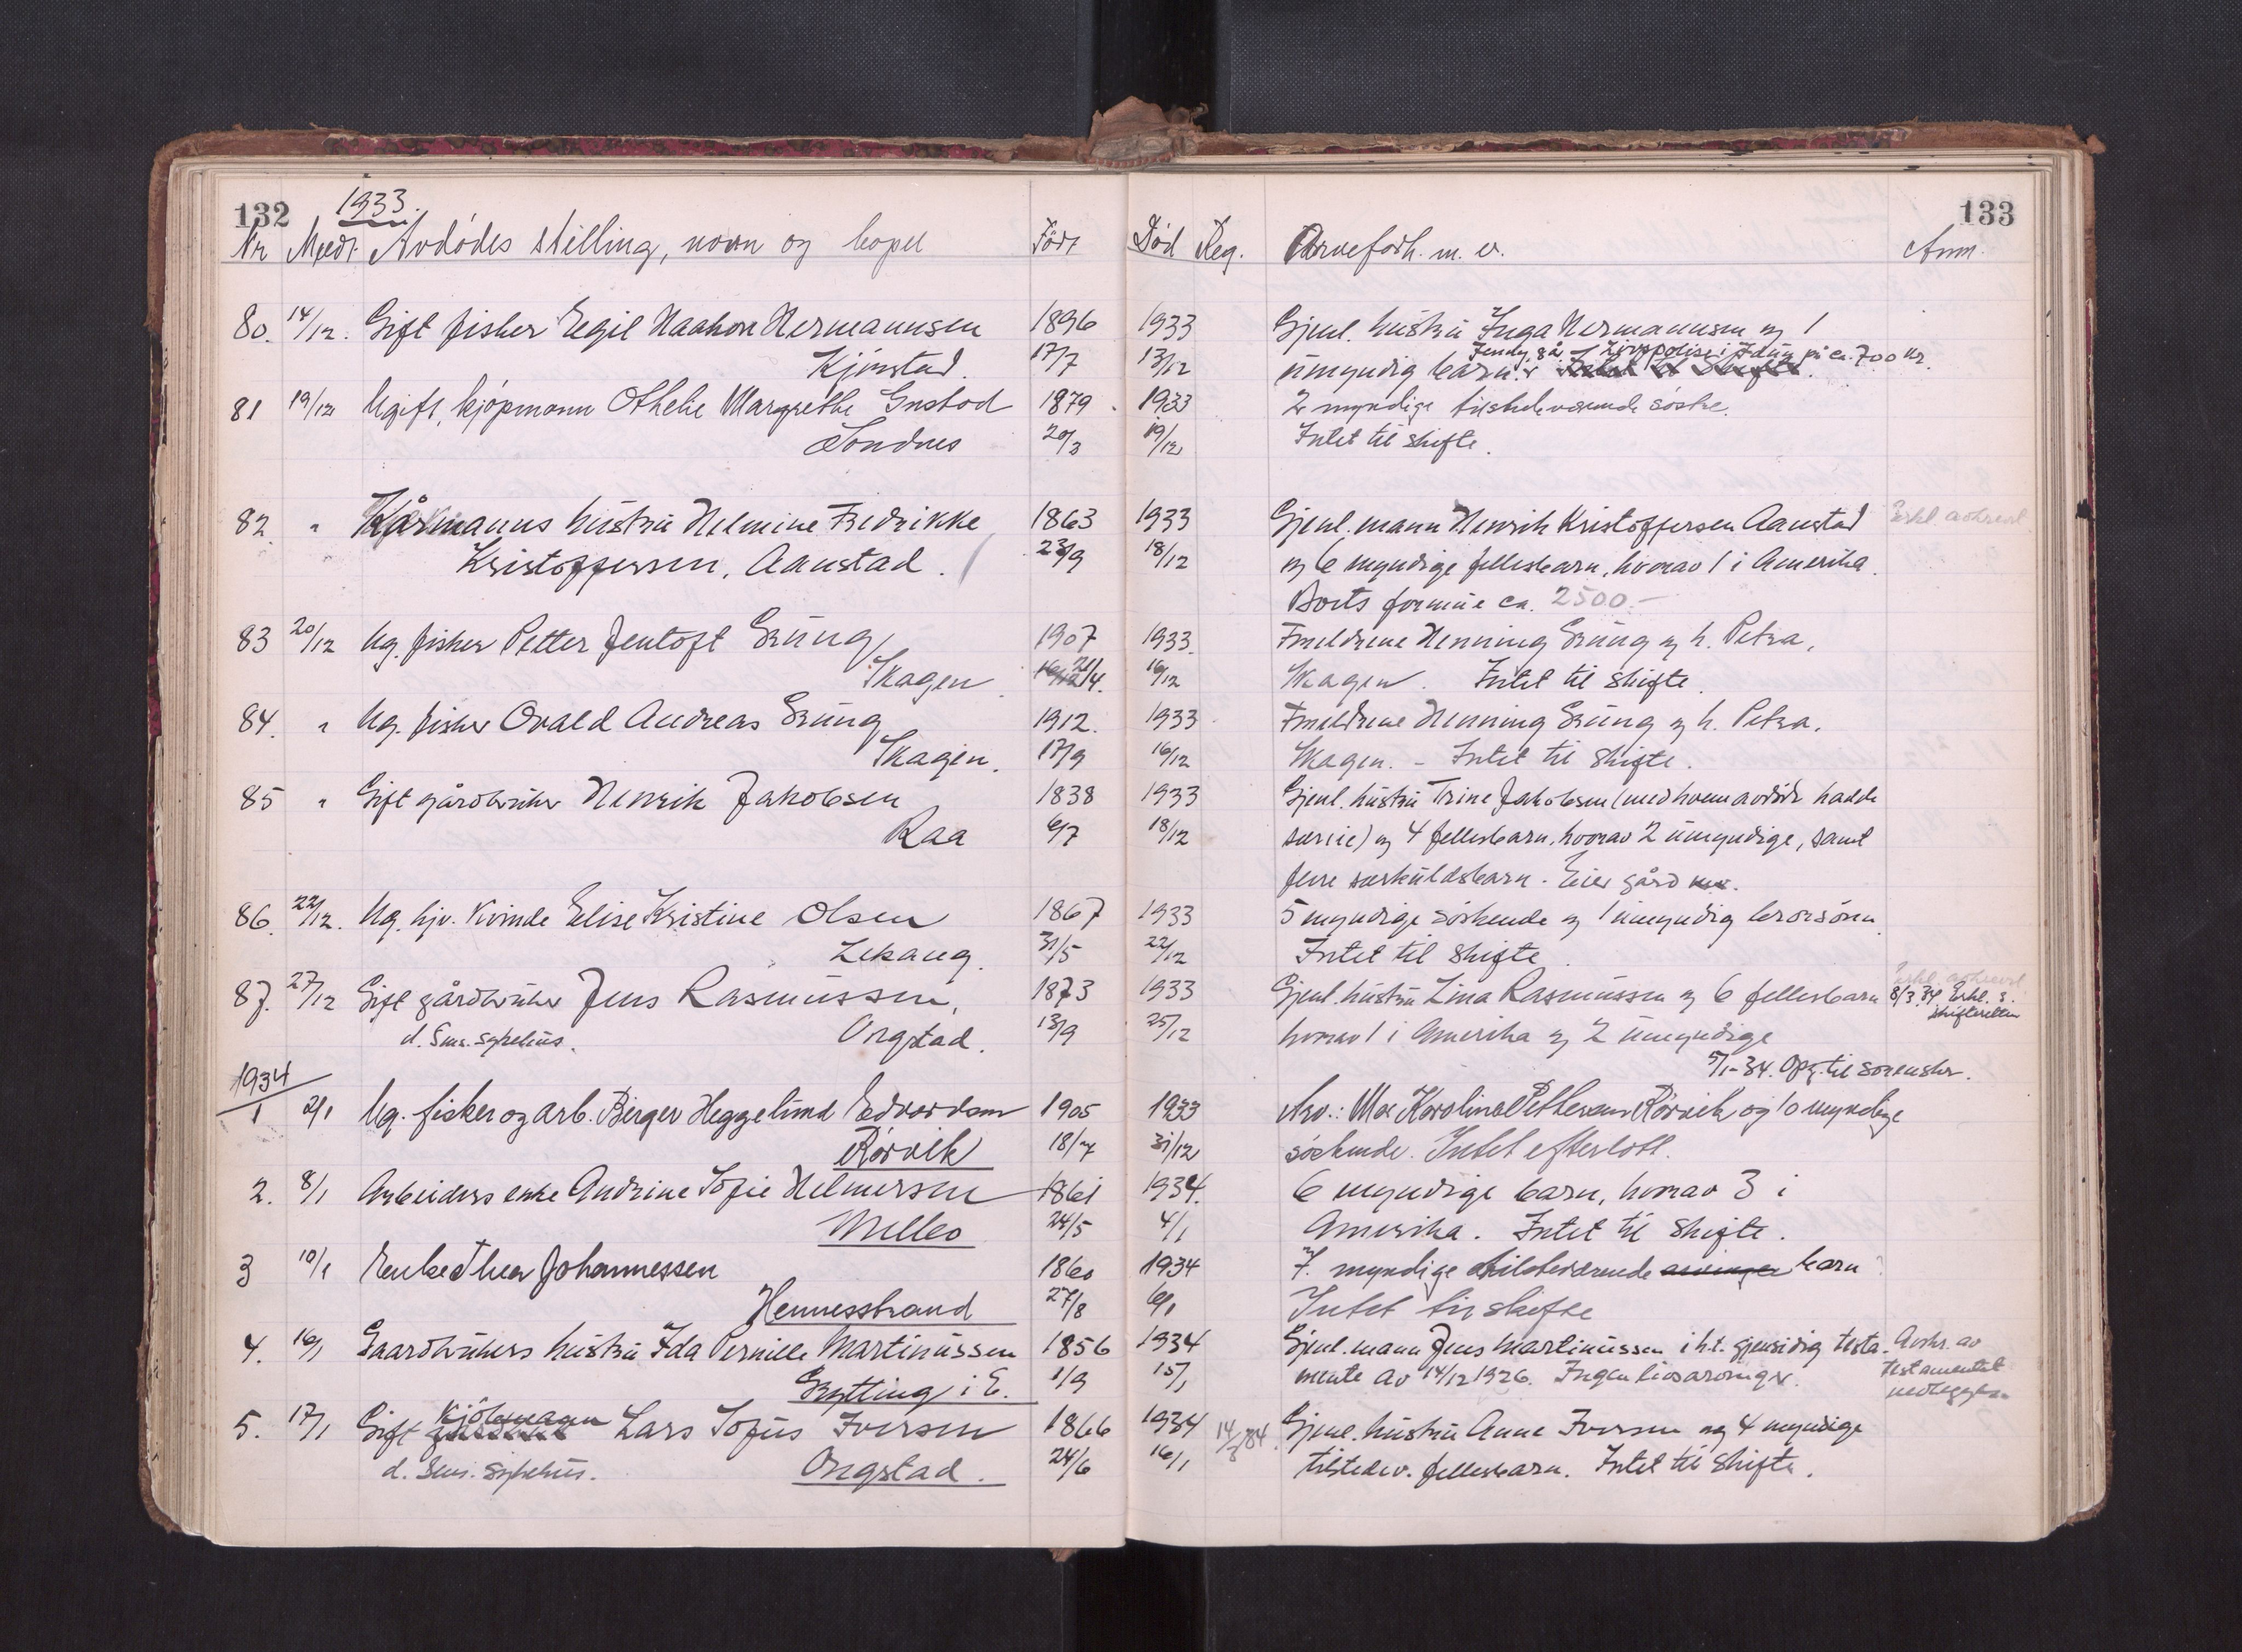 132
1933.
Nr Medt. Avdödes stilling, navn og bopel Född Död Reg. Arveforh. m. v. Anm.
133
80. 14/12. Gift fisker Egil Haakon Hermannsen 1896 1933 Gjenl. hustru Inga Hermannsen og 1
Kjönstad. 17/7 13/12 umyndig barn. Livspolise i Idun på ca. 700 kr.
81 19/12 Ugift, kjöpmann Othelie Margrethe Gustad 1879 1933 2 myndige tilstedeværende söstre.
Sandnes 20/3 19/12 Intet til skifte.
82. " Kårmanns hustru Helmine Fredrikke 1863 1933 Gjenl. mann Henrik Kristoffersen Aanstad
Kristoffersen, Aanstad. 23/9 18/12 og 6 myndige fellesbarn, hvorav 1 i Amerika.
Boets formue ca. 2500.-
83 20/12 Ug. fisker Petter Jentoft Grung 1907 1933. Foreldrene Henning Grung og h. Petra,
Skagen. 21/4. 16/12 Skagen. Intet til skifte.
84. " Ug. fisker Ovald Andreas Grung 1912. 1933 Foreldrene Henning Grung og h. Petra,
Skagen. 17/9 16/12 Skagen. - Intet til skifte.
85 " Gift gårdbruker Henrik Jakobsen 1838 1933 Gjenl. hustru Trine Jakobsen (med hvem avdöde hadde
Raa 6/7 18/12 særeie) og 4 fellesbarn, hvorav 2 umyndige, samt
flere særkuldsbarn. Eier gård
86. 22/12. Ug. hjv. kvinde Elise Kristine Olsen 1867 1933 5 myndige söskende og 1 umyndig brorsönn.
Lekang. 31/5 22/12 Intet til skifte.
87. 27/12 Gift gårdbruker Jens Rasmussen, 1873 1933 Gjenl. hustru Lina Rasmussen og 6 fellesbarn 8/3.34 Erkl. s. skifteretten
d. Sms. sykehus. Ongstad. 13/9 25/12 hvorav 1 i Amerika og 2 umyndige
5/1-34. Opg. til sorenskr.
1934
1 2/1 Ug. fisker og arb. Birger Heggelund Edvardsen 1905 1933 Arv.: Mor Karoline Pettersen Rörvik og 10 myndige
Rörvik 18/7 31/12 söskende. Intet efterlatt.
2. 8/1 Arbeiders enke Andrine Sofie Helmersen 1861 1934. 6 myndige barn, hvorav 3 i
Melbo 24/5 4/1 Amerika. Intet til skifte.
3 10/1 Enke Thea Johannessen 1860 1934 7. myndige tilstedeværende arvinger barn
Hennesstrand 27/8 6/1 Intet til skifte
4. 16/1 Gaardbrukers hustru Ida Pernille Martinussen 1856 1934 Gjenl. mann Jens Martinussen i h.t. gjensidig testa- Avskr. av
Grytting i E. 1/9 15/1 mente av 14/12 1926. Ingen livsarvinger. testamentet
nedlegges.
5. 17/1 Gift kjöbmann Lars Sofus Iversen 1866 1934 14/3 34. Gjenl. hustru Anna Iversen og 4 myndige
d. Sms. sykehus. Ongstad. 24/6 16/1 tilstedev. fellesbarn. Intet til skifte.